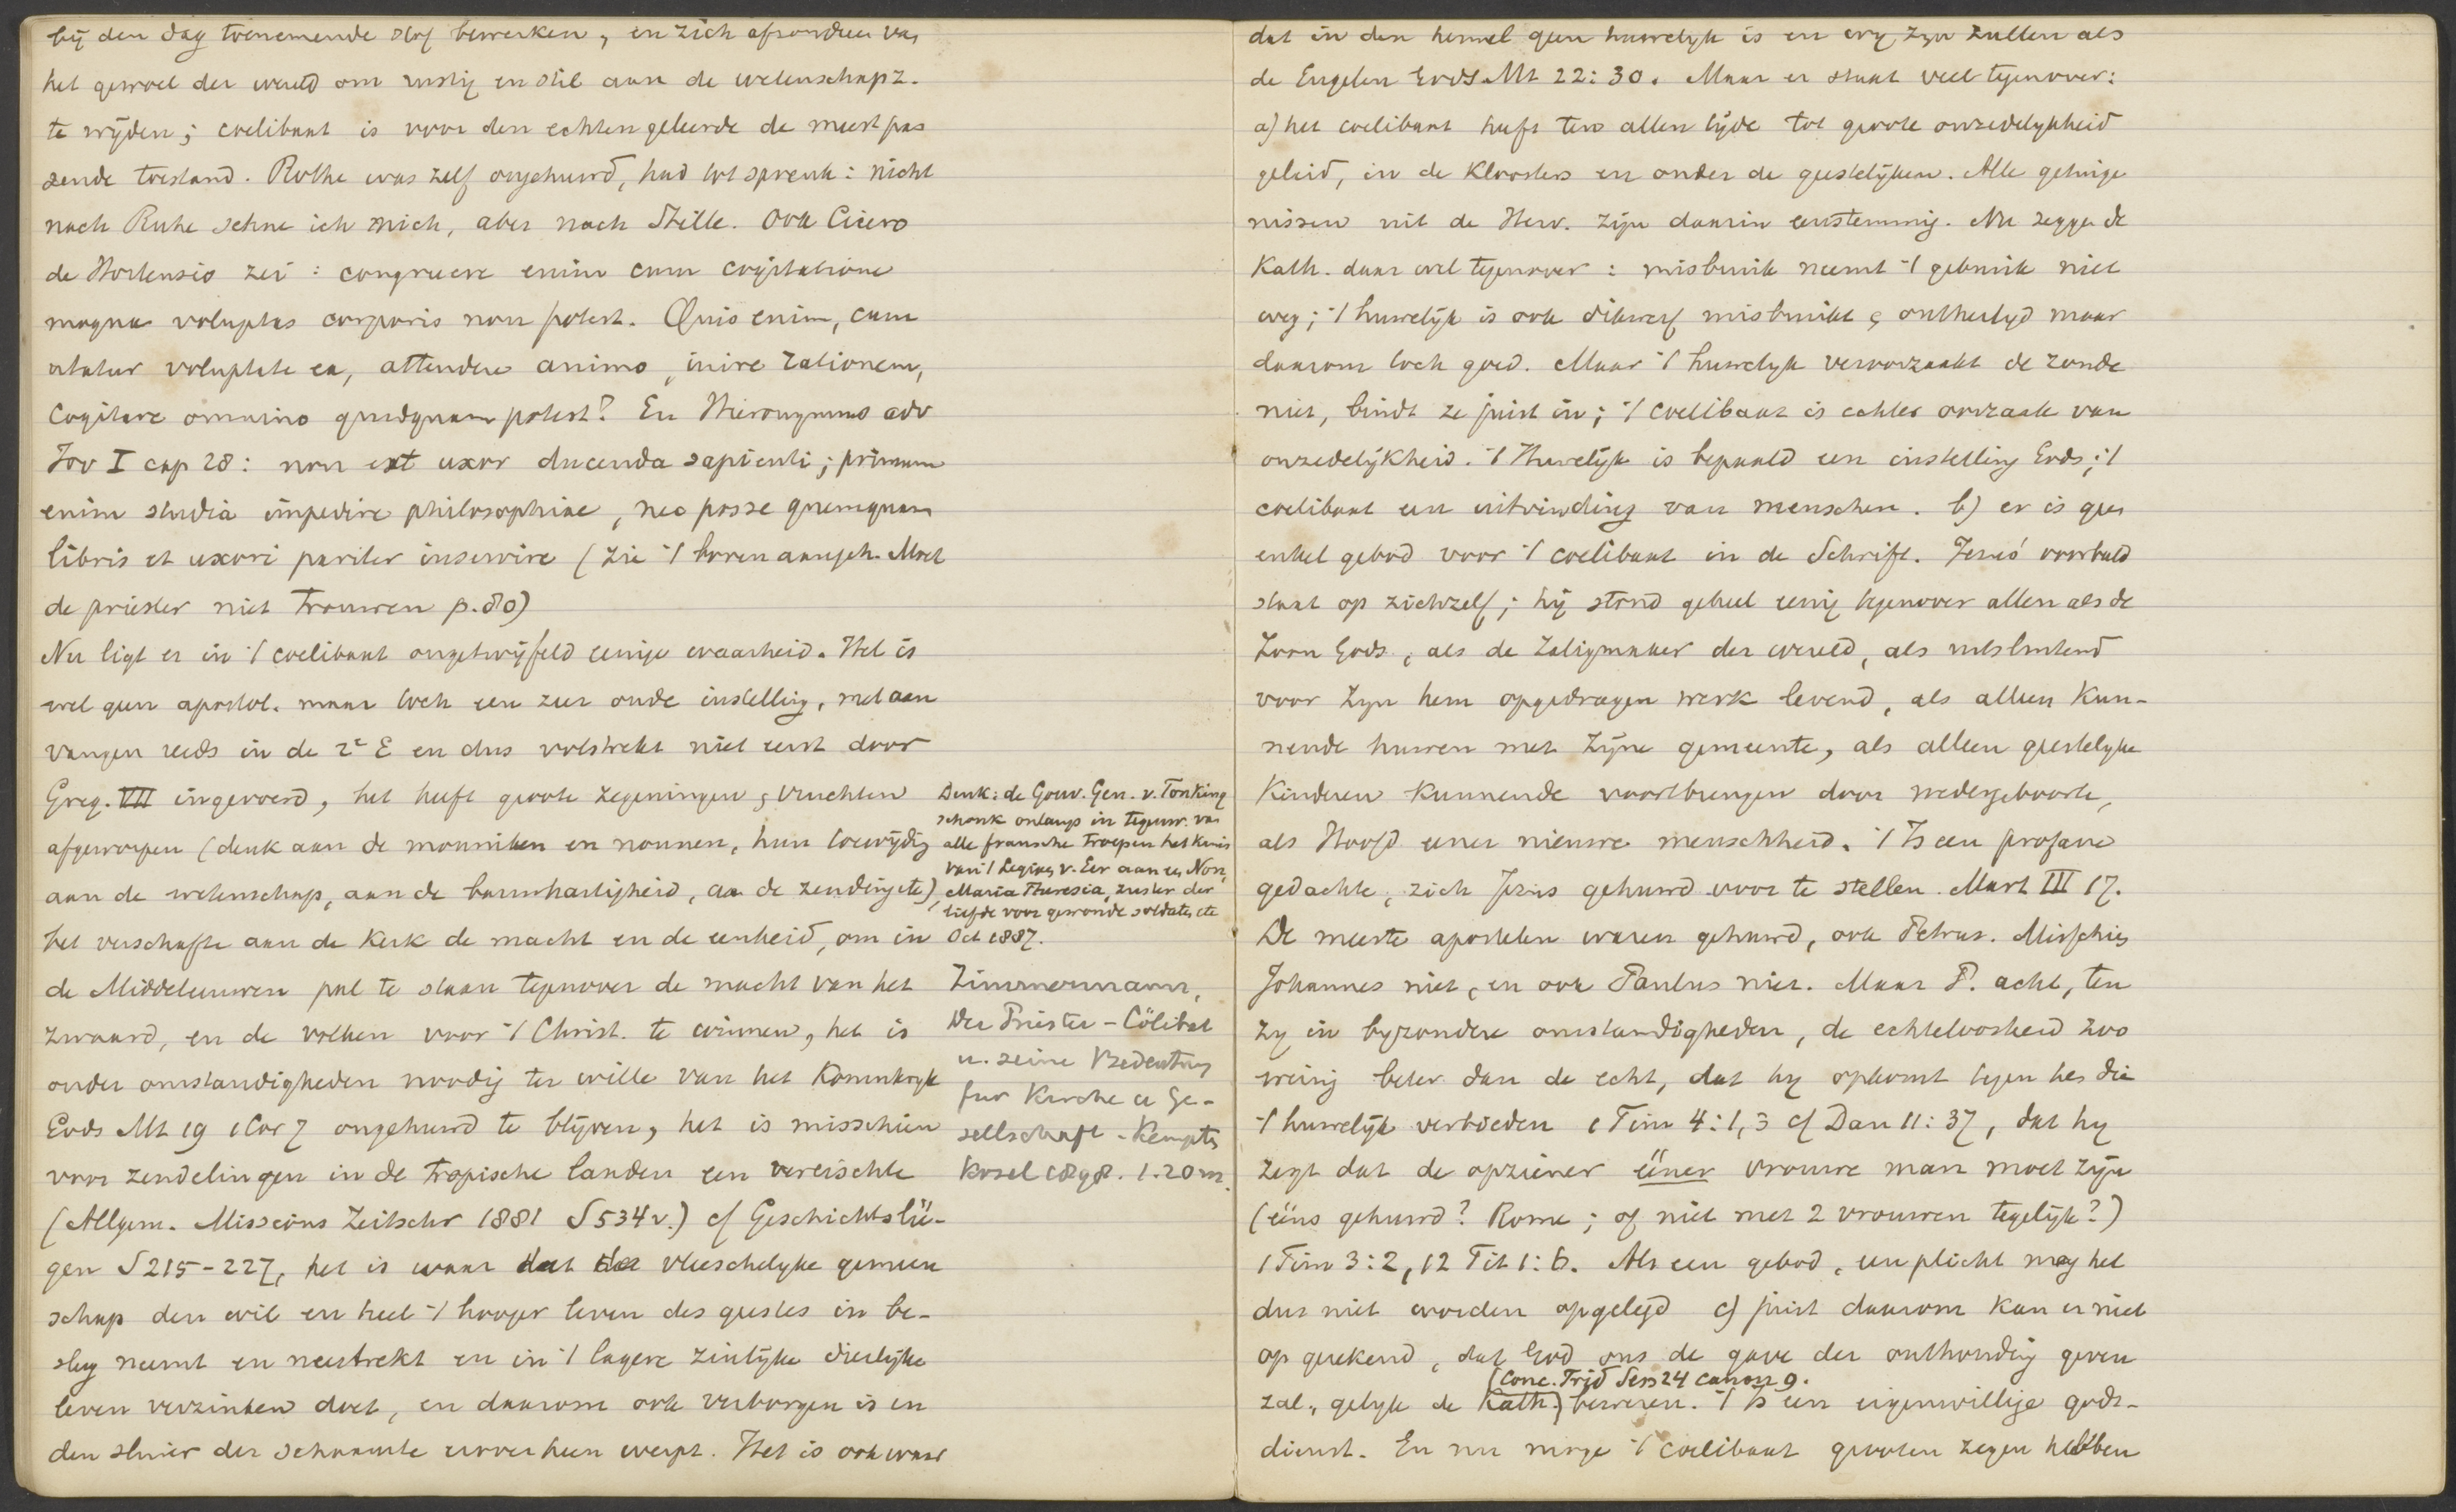 bij den dag toenemende stof bewerken, en zich afzonderen van
het gewoel der wereld om rustig en stil aan de wetenschap z.
te wijden; coelibaat is voor den echten geleerde de meest pas
sende toestand. Rothe was zelf ongehuwd, had tot spreuk: nicht
nach Ruhe sehne ich mich, aber nach Stille. Ook Cicero
de Hortensio zei: congruere enim cum cogitatione
magna voluptas corporis non potest. Quis enim, cum
utatur voluptate ea, attendere animo, inire rationem,
cogitare omnino quidquam potest? En Hieronymus adv
Jov I cap 28: non est uxor ducenda sapienti; primum
enim studia impedire philosophiae, nec posse quemquam
libris et uxori pariter inservire (zie 't boven aangeh. Moet
de priester niet trouwen p. 80)
Nu ligt er in 't coelibaat ongetwijfeld eenige waarheid. Het is
wel geen apostol. maar toch een zeer oude instelling, met aan
vangen reeds in de 2e E en dus volstrekt niet eerst door
Greg. VII ingevoerd, het heeft groote zegeningen & vruchten
afgeworpen (denk aan de monniken en nonnen, hun toewijding
aan de wetenschap, aan de barmhartigheid, aan de zending etc),
het verschafte aan de Kerk de macht en de eenheid, om in
de Middeleeuwen pal te staan tegenover de macht van het
zwaard, en de volken voor 't Christ. te winnen, het is
onder omstandigheden noodig ter wille van het Koninkrijk
Gods Mt 19 1 Cor 7 ongehuwd te blijven, het is misschien
voor zendelingen in de tropische landen een vereischte
(Allgem. Missions Zeitschr 1881 S 534 v.) cf Geschichtslü-
gen S 215-227, het is waar dat de vleeschelyke gemeen
schap den wil en heel 't hooger leven des geestes in be-
slag neemt en neertrekt en in 't lagere zinlijke dierlijke
leven verzinken doet, en daarom ook verborgen is en
den sluier der schaamte erover heen werpt. Het is ook waar
Denk: de Gouv. Gen. v. Tonking
schonk onlangs in tegenw. van
alle fransche troepen het kruis
van 't Legioen v. Eer aan een Non,
Maria Theresia, zuster der
liefde voor gewonde soldaten etc
Oct 1887.
Zimmermann,
Der Priester-Cölibat
u. seine Bedeutung
fur Kirche u Ge-
sellschaft - Kempten
Kosel 1898. 1.20 m.
dat in den hemel geen huwelyk is en wy zyn zullen als
de Engelen Gods Mt 22:30. Maar er staat veel tegenover:
a) het coelibaat heeft ten allen tijde tot groote onzedelykheid
geleid, in de Kloosters en onder de geestelijken. Alle getuige
nissen uit de Herv. zijn daarin eenstemmig. Nu zeggen de
Kath. daar wel tegenover: misbruik neemt 't gebruik niet
weg; 't huwelijk is ook dikwerf misbruikt & ontheiligd maar
daarom toch goed. Maar 't huwelyk veroorzaakt de zonde
niet, bindt ze juist in; 't coelibaat is echter oorzaak van
onzedelijkheid. 't Huwelijk is bepaald een instelling Gods; 't
coelibaat een uitvinding van menschen. b) er is geen
enkel gebod voor 't coelibaat in de Schrift. Jezus' voorbeeld
staat op zichzelf; hij stond geheel eenig tegenover allen als de
Zoon Gods, als de Zaligmaker der wereld, als uitsluitend
voor zyn hem opgedragen werk levend, als alleen kun-
nende huwen met zijne gemeente, als alleen geestelyke
kinderen kunnende voortbrengen door wedergeboorte,
als Hoofd eener nieuwe menschheid. 't Is een profane
gedachte, zich Jezus gehuwd voor te stellen. Mart III 17.
De meeste apostelen waren gehuwd, ook Petrus. Misschien
Johannes niet, en ook Paulus niet. Maar P. acht, ten
zy in byzondere omstandigheden, de echteloosheid zoo
weinig beter dan de echt, dat hy opkomt tegen hen die
't huwelijk verbieden 1 Tim 4:1,3 cf Dan 11:37, dat hy
zegt dat de opziener ééner vrouwe man moet zijn
(ééns gehuwd? Rome; of niet met 2 vrouwen tegelijk?)
1 Tim 3:2, 12 Tit 1:6. Als een gebod, een plicht mag het
dus niet worden opgelegd c) juist daarom kan er niet
op gerekend, dat God ons de gave der onthouding geven
(Conc. Trid Sess 24 canon 9.
zal, gelyk de Kath.) beweren. 't Is een eigenwillige gods-
dienst. En nu moge 't coelibaat grooten zegen hebben